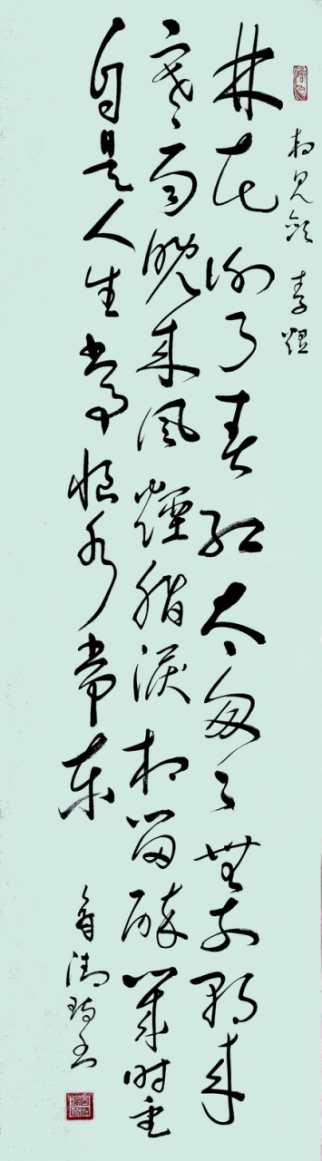 相见欢 李煜
林花谢了春红太匆匆無奈朝来
寒雨晚来风煙脂淚相留醉幾时重
自是人生常恨水常东
书